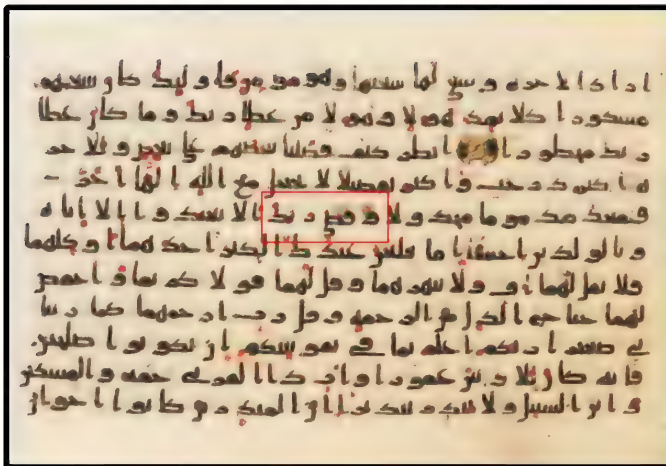 اراد الاخره وسعى لها سعيها وهو مومن فاوليك كان سعيهم
مشكورا كلا نمد هولا وهولا من عطا ربك وما كان عطا
ربك محظورا انظر كيف فضلنا بعضهم على بعض وللاخر
ه اكبر درجت واكبر تفضيلا لا تجعل مع الله الها اخر
فتقعد مذموما مخذولا وقضى ربك الا تعبدوا الا اياه
وبالولدين احسنا اما يبلغن عندك الكبر احدهما او كلهما
فلا تقل لهما اف ولا تنهرهما وقل لهما قولا كريما واخفض
لهما جناح الذل من الرحمه وقل رب ارحمهما كما ربيا
ني صغيرا ربكم اعلم بما في نفوسكم ان تكونوا صلحين
فانه كان للاوبين غفورا وات ذا القربى حقه والمسكين
وابن السبيل ولا تبذر تبذيرا ان المبذرين كانوا اخون